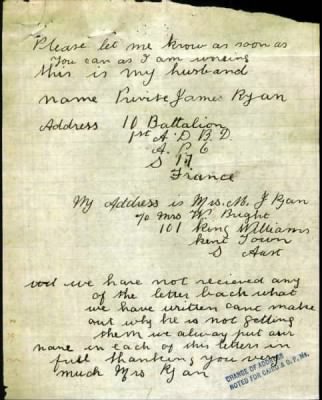 Please let me know as soon as
you can as I am
this is my husband
name Privite James Ryan
Address 10 Battalion
1st A. D. B. D.
A. P. O
S 17
France
My Address is Mrs. M. J Ryan
c/o Mrs W. Bright
101 King Williams
Kent Town
S Aust
we have not recieved any
of the letter back what
we have written cant make
out why he is not getting
them we alway put our
name in each of his letters in
full thanking you very
much Mrs Ryan
CHANGE OF ADDRESS
NOTED FOR CARDS & O.P. Ms.